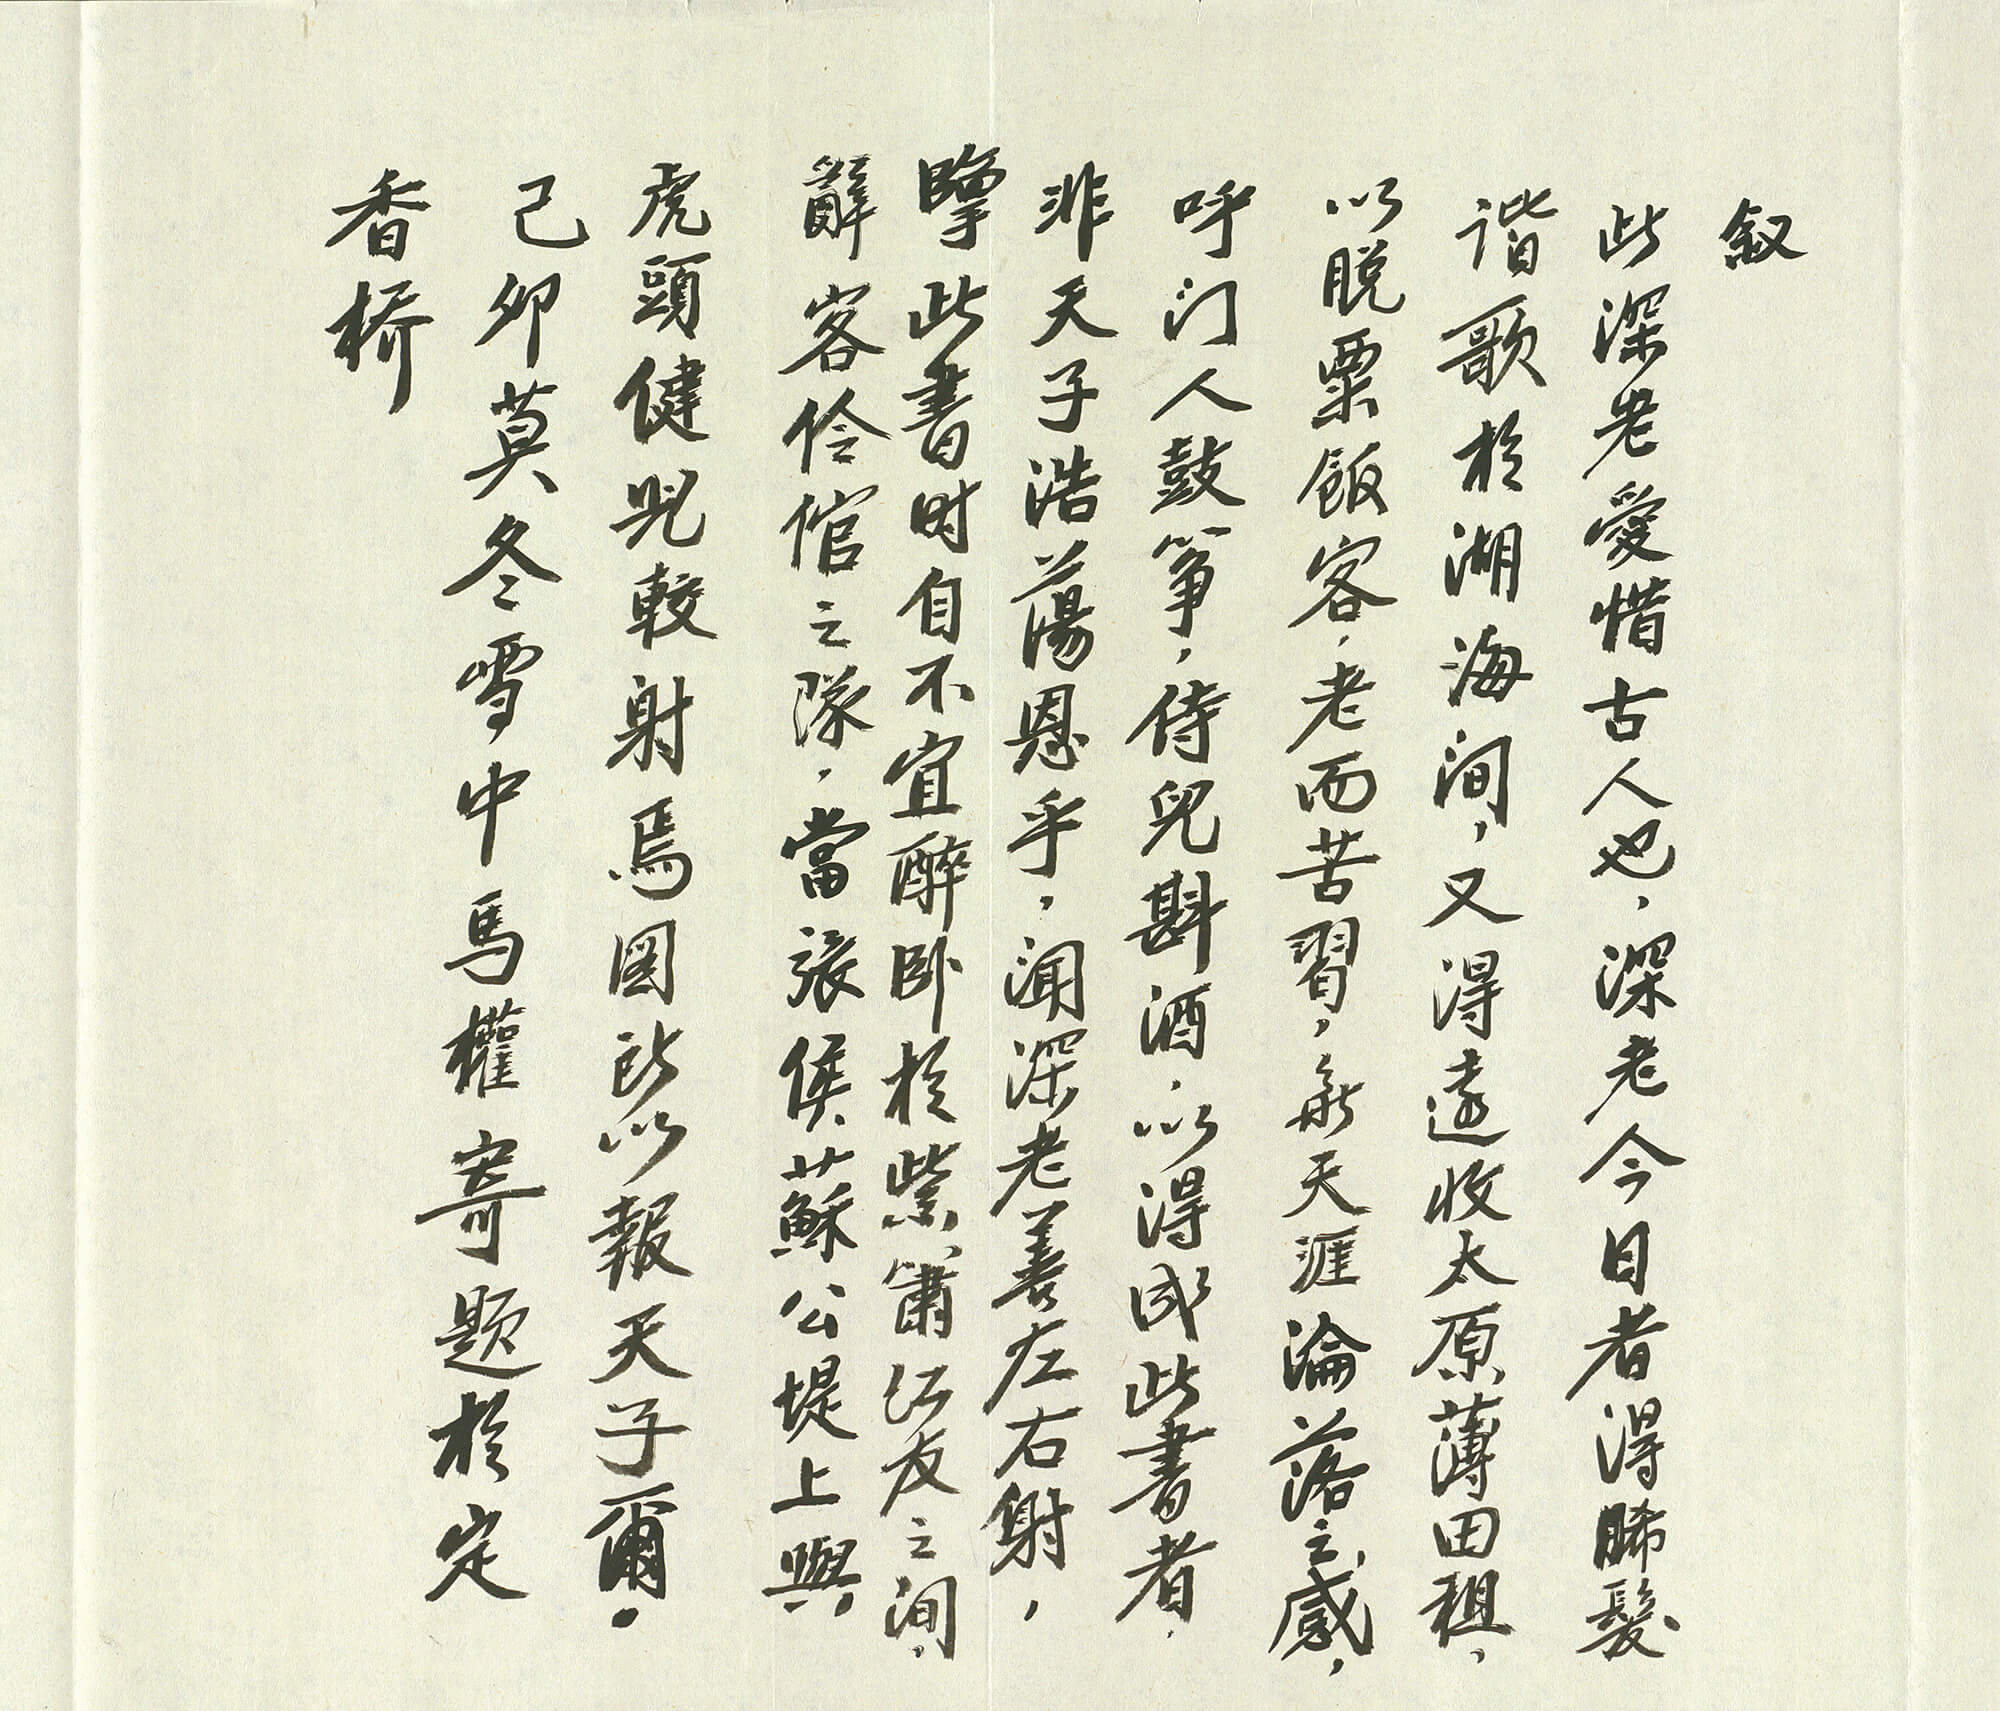 叙
此深老愛惜古人也，深老今日者得晞髮
谐歌於湖海间，又得遠收太原薄田租，
以脱粟飯客，老而苦習，無天涯淪落之感，
呼门人鼓筝，侍兒斟酒，以得成此書者，
非天子浩蕩恩乎，闻深老善左右射，
擥此書时自不宜醉卧於紫簫红友之间，
辭客伶倌之隊，當張侯蘇公堤上與
虎頭健兒較射焉图所以報天子爾。
己卯莫冬雪中馬權寄题於定
香桥